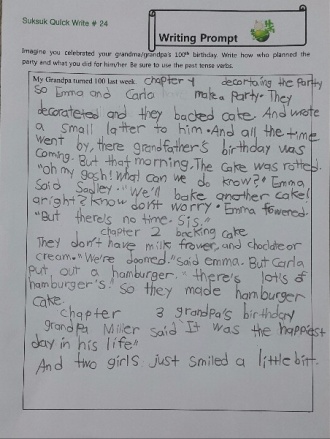 Suksuk Quick Write # 24
Writing Prompt
Imagine you celebrated your grandma/grandpa's 100th birthday. Write how who planned the
party and what you did for him/her. Be sure to use the past tense verbs.
My Grandpa turned 100 last week. chapter 1 decortaing the Party
So Emma and Carla make a Party. They
decorateted and they backed cake. And wrote
a small latter to him. And all the time
went by, there grandfather's birthday was
coming. But that morning, The cake was rotted.
"oh my gosh! what can we do know?" Emma
said Sadley. "We'll bake another cake!
aright? know don't worry. Emma
"But there's no time. Sis."
chapter 2 backing cake
They don't have milk frower, and choclate or
cream. "We're doomed." said Emma. But Carla
put out a hamburger. "there's lots of
hamburger's." So they made hamburger
cake.
chapter 3 grandpa's birthday
grandpa Miller said "It was the happiest
day in his life"
And two girls just smiled a little bitt.